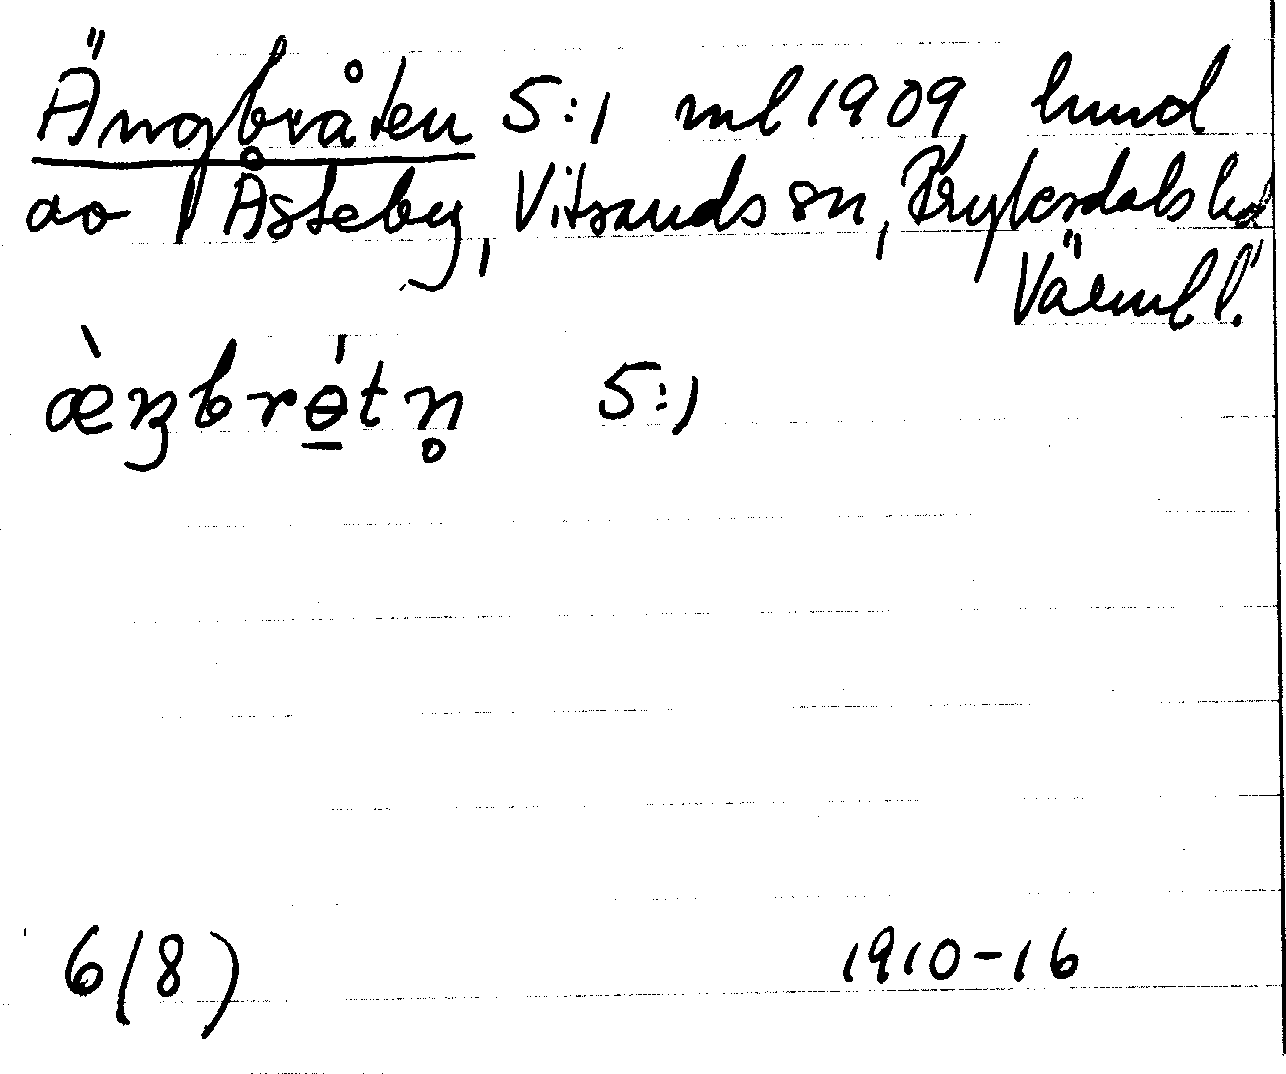 Ängbråten 5:1 ml 1909 hmd
av Åsteby, Vitsands sn, Fryksdals hd
Värml l.
æ̀ŋbrɵ́tn̥ 5:1
6(8) 1910-16